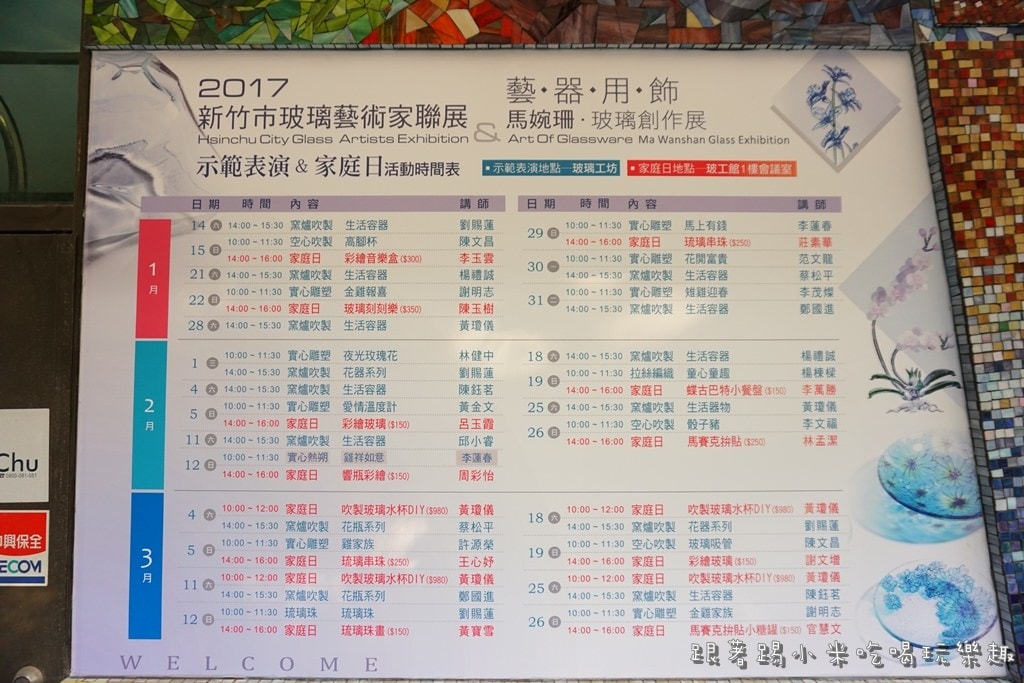 2017
新竹市玻璃藝術家聯展
Hsinchu City Glass Artists Exhibition
&
藝·器·用·飾
馬婉珊·玻璃創作展
Art Of Glassware Ma Wanshan Glass Exhibition
示範表演&家庭日活動時間表
■示範表演地點—玻璃工坊
■家庭日地點—玻工館1樓會議室
日期 時間 內容 講師
1月
14 六 14:00~15:30 窯爐吹製 生活容器 劉賜蓮
15 日 10:00~11:30 空心吹製 高腳杯 陳文昌
14:00~16:00 家庭日 彩繪音樂盒($300) 李玉雲
21 六 14:00~15:30 窯爐吹製 生活容器 楊禮誠
22 日 10:00~11:30 實心雕塑 金雞報喜 謝明志
14:00~16:00 家庭日 玻璃刻刻樂($350) 陳玉樹
28 六 14:00~15:30 窯爐吹製 生活容器 黃瓊儀
2月
1 三 10:00~11:30 實心雕塑 夜光玫瑰花 林健中
14:00~15:30 窯爐吹製 花器系列 劉賜蓮
4 六 14:00~15:30 窯爐吹製 生活容器 陳鈺茗
5 日 10:00~11:30 實心雕塑 愛情溫度計 黃金文
14:00~16:00 家庭日 彩繪玻璃($150) 呂玉霞
11 六 14:00~15:30 窯爐吹製 生活容器 邱小睿
12 日 10:00~11:30 實心熱塑 雞祥如意 李蓮春
14:00~16:00 家庭日 響瓶彩繪($150) 周彩怡
3月
4 六 10:00~12:00 家庭日 吹製玻璃水杯DIY($980) 黃瓊儀
14:00~15:30 窯爐吹製 花瓶系列 蔡松平
5 日 10:00~11:30 實心雕塑 雞家族 許源榮
14:00~16:00 家庭日 琉璃串珠($250) 王心妤
11 六 10:00~12:00 家庭日 吹製玻璃水杯DIY($980) 黃瓊儀
14:00~15:30 窯爐吹製 花瓶系列 鄭國進
12 日 10:00~11:30 琉璃珠 琉璃珠 劉賜蓮
14:00~16:00 家庭日 琉璃珠畫($150) 黃寶雪
日期 時間 內容 講師
29 日 10:00~11:30 實心雕塑 馬上有錢 李蓮春
14:00~16:00 家庭日 琉璃串珠($250) 莊素華
30 一 10:00~11:30 實心雕塑 花開富貴 范文龍
14:00~15:30 窯爐吹製 生活容器 蔡松平
31 二 10:00~11:30 實心雕塑 雉雞迎春 李茂燦
14:00~15:30 窯爐吹製 生活容器 鄭國進
18 六 14:00~15:30 窯爐吹製 生活容器 楊禮誠
19 日 10:00~11:30 拉絲編織 童心童趣 楊棟樑
14:00~16:00 家庭日 蝶古巴特小餐盤($150) 李萬勝
25 六 14:00~15:30 窯爐吹製 生活器物 黃瓊儀
26 日 10:00~11:30 空心吹製 骰子豬 李文福
14:00~16:00 家庭日 馬賽克拚貼($250) 林孟潔
18 六 10:00~12:00 家庭日 吹製玻璃水杯DIY($980) 黃瓊儀
14:00~15:30 窯爐吹製 花器系列 劉賜蓮
19 日 10:00~11:30 空心吹製 玻璃吸管 陳文昌
14:00~16:00 家庭日 彩繪玻璃($150) 謝文增
25 六 10:00~12:00 家庭日 吹製玻璃水杯DIY($980) 黃瓊儀
14:00~15:30 窯爐吹製 生活容器 陳鈺茗
26 日 10:00~11:30 實心雕塑 金雞家族 謝明志
14:00~16:00 家庭日 馬賽克拚貼小糖罐($150) 官慧文
WELCOME
Chu
0800-081-081
中興保全
ECOM
跟著踢小米吃喝玩樂趣